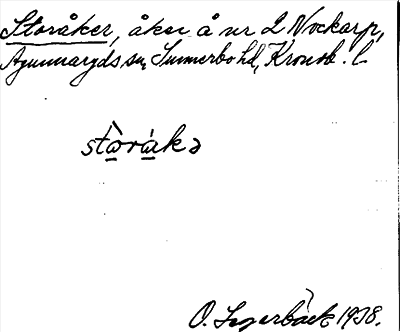 Storåker, åker å nr 2 Nockarp,
Agunnaryds sn, Sunnerbo hd, Kronob. l
stòråkə
O. Segerbäck 1938.